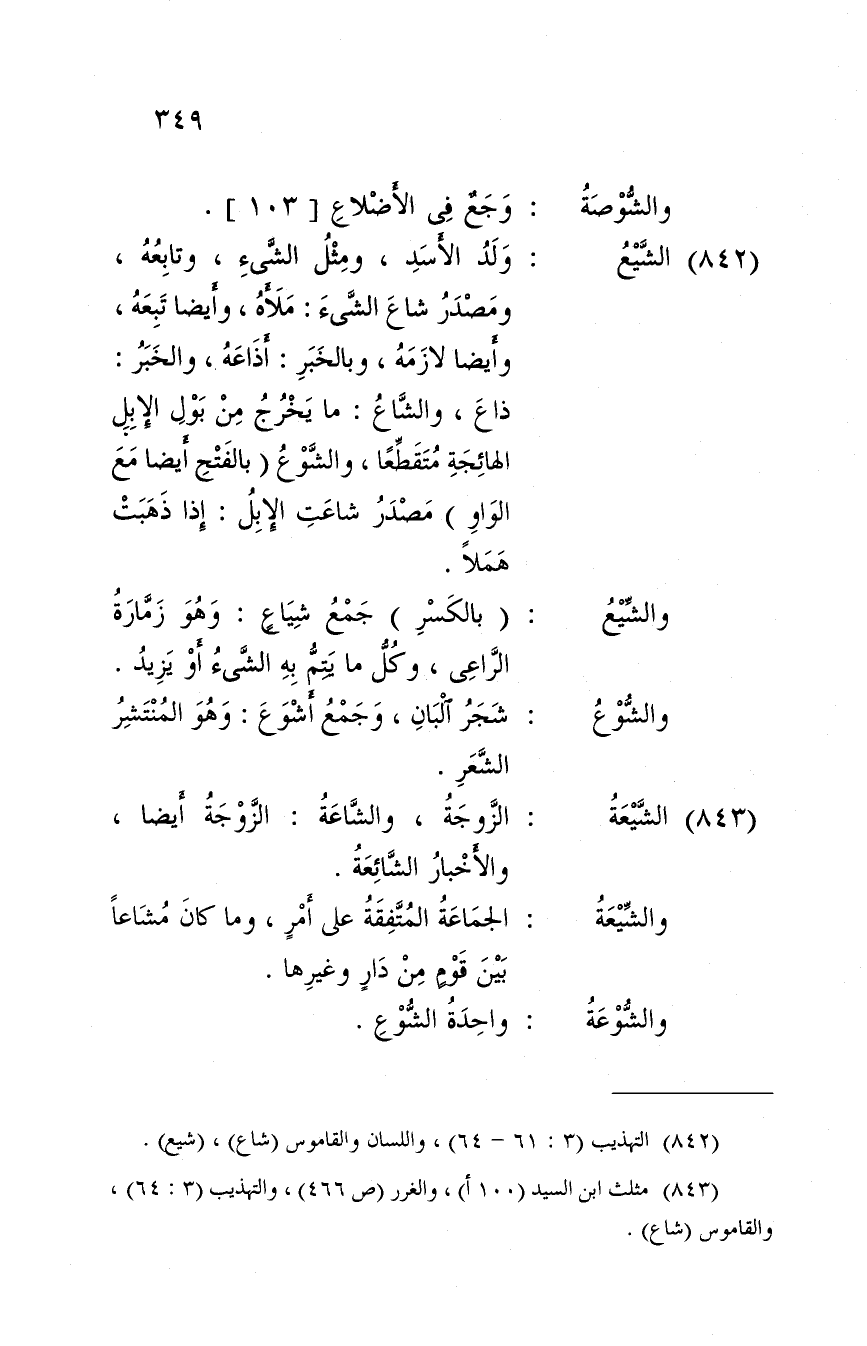 ٣٤٩
والشُّوْصَةُ : وَجَعٌ فِى الأَضْلاعِ [ ١٠٣ ] .
(٨٤٢) الشَّيْعُ : وَلَدُ الأَسَدِ ، ومِثْلُ الشَّىءِ ، وتابِعُهُ ،
ومَصْدَرُ شاعَ الشَّىءَ : مَلَأَهُ ، وأَيضا تَبِعَهُ ،
وأَيضا لازَمَهُ ، وبالخَبَرِ : أَذَاعَهُ ، والخَبَرُ :
ذاعَ ، والشَّاعُ : ما يَخْرُجُ مِنْ بَوْلِ الإِبِلِ
الهائِجَةِ مُتَقَطِّعًا ، والشَّوْعُ ( بالفَتْحِ أَيضا مَعَ
الوَاوِ ) مَصْدَرُ شاعَتِ الإِبِلُ : إِذا ذَهَبَتْ
هَمَلاً .
والشِّيْعُ : ( بالكَسْرِ ) جَمْعُ شِيَاعٍ : وَهُوَ زَمَّارَةُ
الرَّاعِى ، وكُلُّ ما يَتِمُّ بِهِ الشَّىءُ أَوْ يَزِيدُ .
والشُّوْعُ : شَجَرُ ٱلْبَانِ ، وَجَمْعُ أَشْوَعَ : وَهُوَ المُنْتَشِرُ
الشَّعَرِ .
(٨٤٣) الشَّيْعَةُ : الزَّوجَةُ ، والشَّاعَةُ : الزَّوْجَةُ أَيضا ،
والأَخْبارُ الشَّائِعَةُ .
والشِّيْعَةُ : الجَمَاعَةُ المُتَّفِقَةُ على أَمْرٍ ، وما كانَ مُشَاعاً
بَيْنَ قَوْمٍ مِنْ دَارٍ وغيرِها .
والشُّوْعَةُ : واحِدَةُ الشُّوْعِ .
(٨٤٢) التهذيب (٣ : ٦١ – ٦٤) ، واللسان والقاموس (شاع) ، (شيع) .
(٨٤٣) مثلث ابن السيد (١٠٠ أ) ، والغرر (ص ٤٦٦) ، والتهذيب (٣ : ٦٤) ،
والقاموس (شاع) .